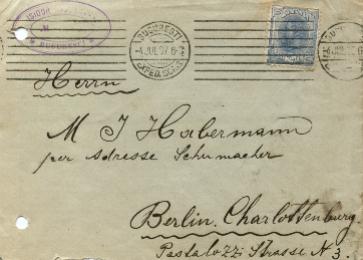 ISIDOR
BUCURESCI
BUCURESTI
4 JUL 07 6-
EXPED. SCRIS.
Herrn
M J Habermann
per Adresse Schumacher
Berlin. Charlottenburg.
Pestalozzi Strasse N 3.